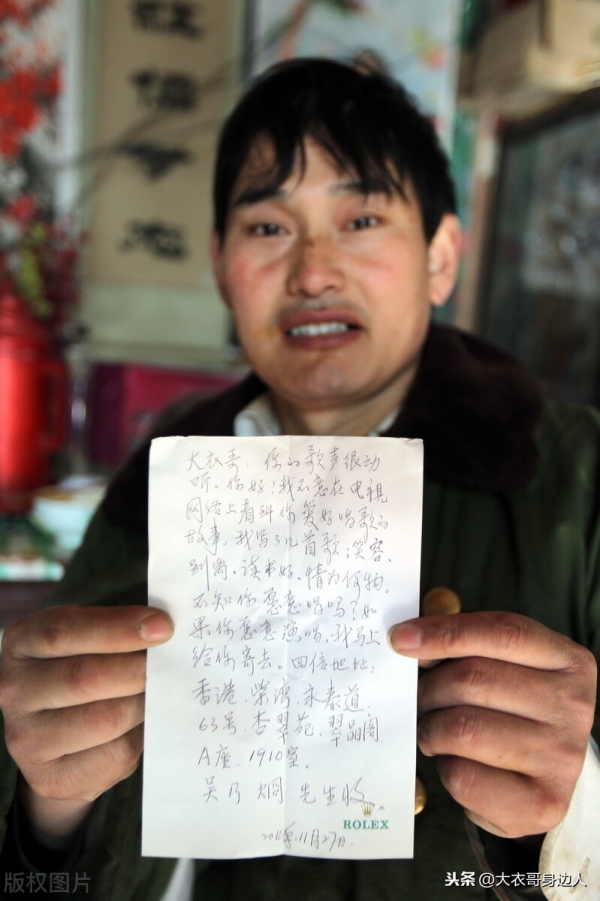 大衣哥:你的歌声很动
听。你好!我不意在电视
网络上看到你爱好唱歌的
故事。我写了几首歌:笑容、
别离、读书好、情为何物。
不知你愿意唱吗?如
果你愿意演唱,我马上
给你寄去。回信地址:
香港.柴湾.永泰道.
63号.杏翠苑.翠晶阁
A座.1910室。
吴乃 先生收。
ROLEX
2011年.11月27日.
版权图片
头条@大衣哥身边人